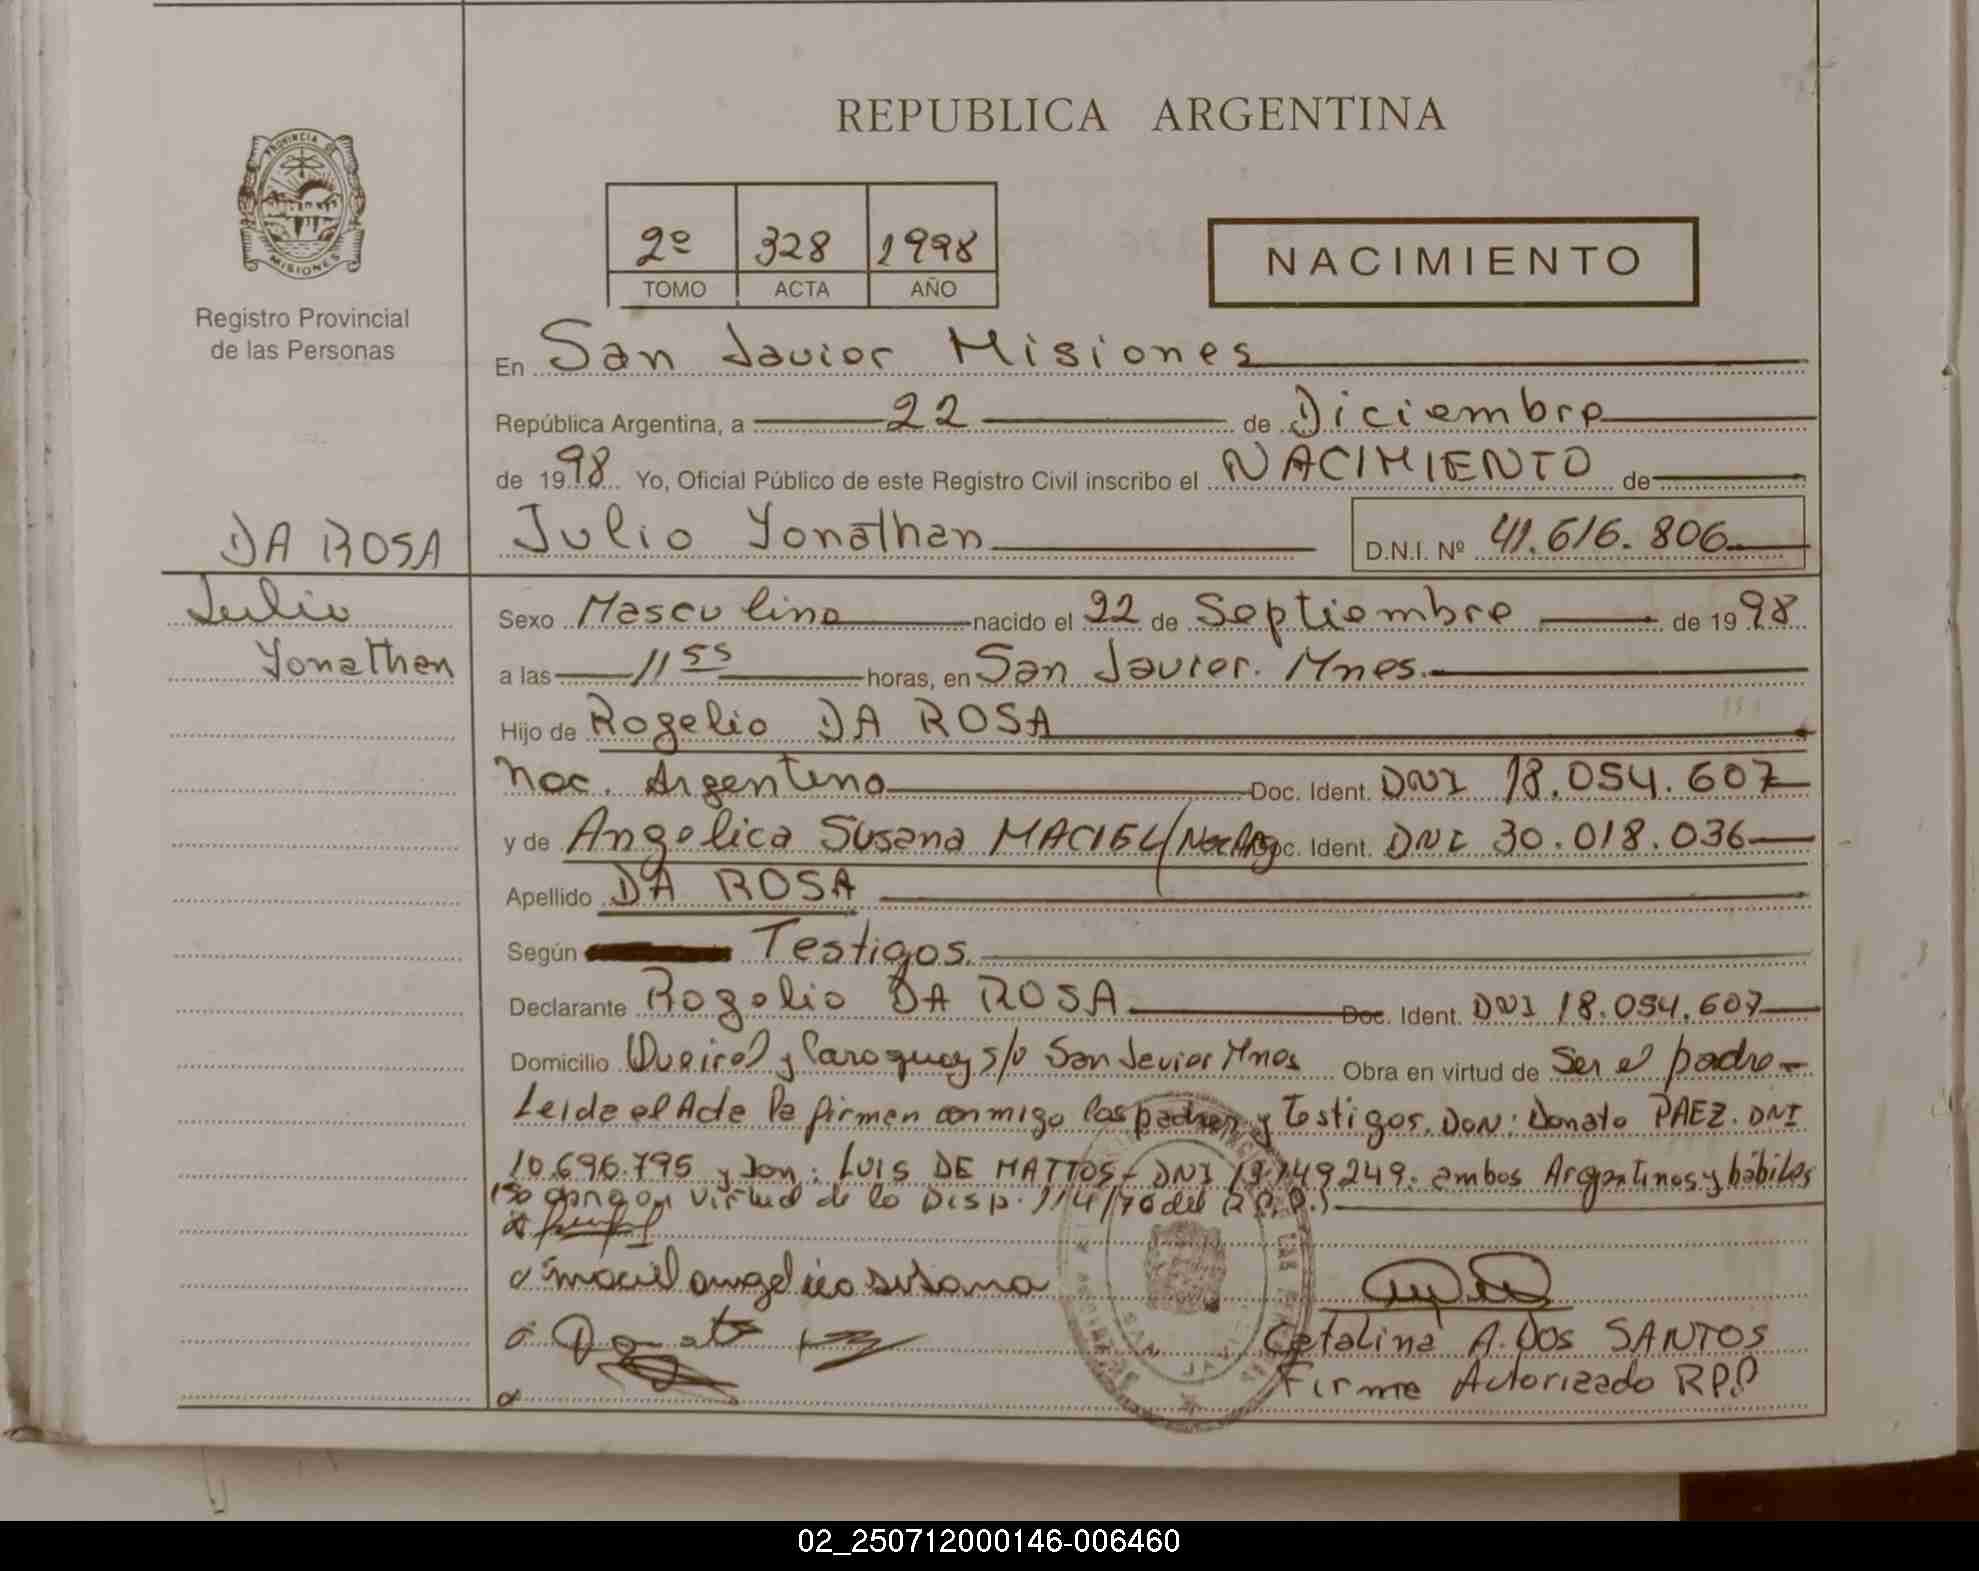 REPUBLICA ARGENTINA
PROVINCIA DE
MISIONES
Registro Provincial
de las Personas
2º 328 1998
TOMO ACTA AÑO
NACIMIENTO
En San Javier Misiones
República Argentina, a 22 de Diciembre
de 1998 Yo, Oficial Público de este Registro Civil inscribo el NACIMIENTO de
DA ROSA
Julio Yonathan D.N.I. Nº 41.616.806
Julio
Yonathan
Sexo Masculino nacido el 22 de Septiembre de 1998
a las 11 55 horas, en San Javier. Mnes.
Hijo de Rogelio DA ROSA
Nac. Argentino Doc. Ident. DNI 18.054.607
y de Angelica Susana MACIEL/Nac Arg Doc. Ident. DNI 30.018.036
Apellido DA ROSA
Según Testigos.
Declarante Rogelio DA ROSA Doc. Ident. DNI 18.054.607
Domicilio Queirel y Paraguay s/n San Javier Mnes Obra en virtud de Ser el padre
Leida el Acta la firman conmigo los padres y Testigos. DON: Donato PAEZ. DNI
10.696.795 y Don: LUIS DE MATTOS - DNI 149249. ambos Argentinos y hábiles
virtud de lo Disp. 114/70 del R.P.P.)
maciel angelica susana
Donato
Catalina A. DOS SANTOS
Firma Autorizada RPP
SAN JAVIER
02_250712000146-006460